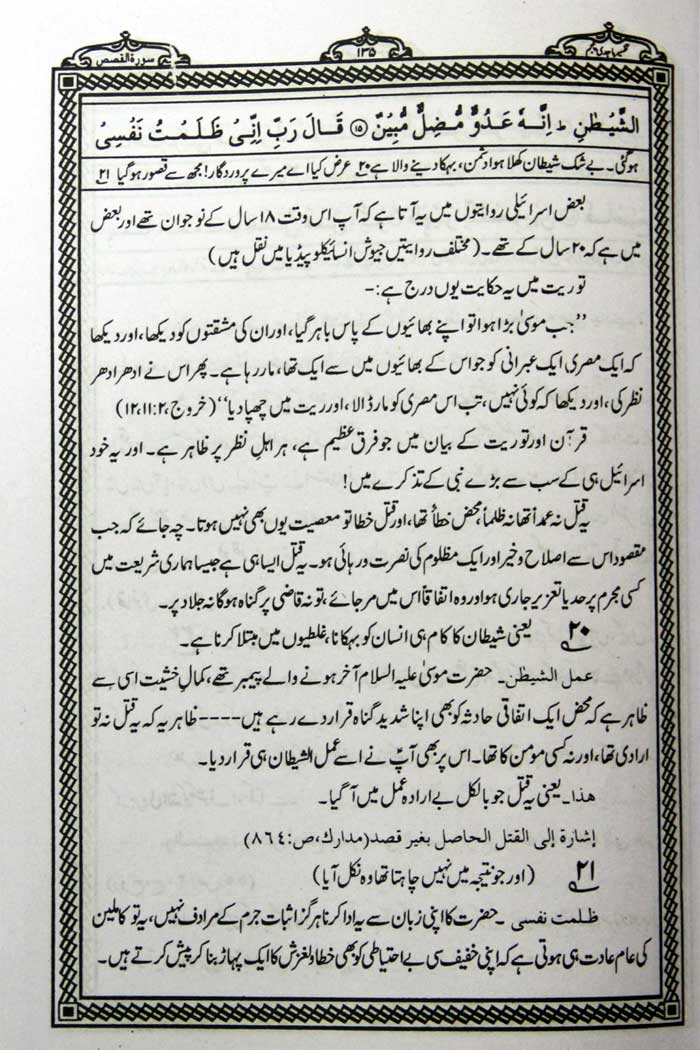 سورۃ القصص
۱۳۵
تفسیر ماجدی پنجم
الشَّيْطٰنِ ؕ اِنَّهٗ عَدُوٌّ مُّضِلٌّ مُّبِيْنٌ ﴿۱۵﴾ قَالَ رَبِّ اِنِّیْ ظَلَمْتُ نَفْسِیْ
ہوگئی۔ بے شک شیطان کھلا ہوا دشمن، بہکا دینے والا ہے ۲۰ عرض کیا اے میرے پروردگار! مجھ سے قصور ہو گیا ۲۱
بعض اسرائیلی روایتوں میں یہ آتا ہے کہ آپ اس وقت ۱۸ سال کے نوجوان تھے اور بعض
میں ہے کہ ۲۰ سال کے تھے۔ (مختلف روایتیں جیوش انسائیکلو پیڈیا میں نقل ہیں)
توریت میں یہ حکایت یوں درج ہے:-
’’جب موسیٰ بڑا ہوا تو اپنے بھائیوں کے پاس باہر گیا، اور ان کی مشقتوں کو دیکھا، اور دیکھا
کہ ایک مصری ایک عبرانی کو جو اس کے بھائیوں میں سے ایک تھا، مار رہا ہے۔ پھر اس نے ادھر ادھر
نظر کی، اور دیکھا کہ کوئی نہیں، تب اس مصری کو مار ڈالا، اور ریت میں چھپا دیا‘‘ (خروج، ۲:۱۱، ۱۲)
قرآن اور توریت کے بیان میں جو فرق عظیم ہے، ہر اہلِ نظر پر ظاہر ہے۔ اور یہ خود
اسرائیل ہی کے سب سے بڑے نبی کے تذکرے میں!
یہ قتل نہ عمداً تھا نہ ظلماً، محض خطأ تھا، اور قتل خطا تو معصیت یوں بھی نہیں ہوتا۔ چہ جائے کہ جب
مقصود اس سے اصلاح وخیر اور ایک مظلوم کی نصرت ورہائی ہو۔ یہ قتل ایسا ہی ہے جیسا ہماری شریعت میں
کسی مجرم پر حد یا تعزیر جاری ہو اور وہ اتفاقاً اس میں مر جائے، تو نہ قاضی پر گناہ ہوگا نہ جلاد پر۔
۲۰ یعنی شیطان کا کام ہی انسان کو بہکانا، غلطیوں میں مبتلا کرنا ہے۔
عمل الشیطٰن۔ حضرت موسیٰ علیہ السلام آخر ہونے والے پیمبر تھے، کمالِ خشیت اسی سے
ظاہر ہے کہ محض ایک اتفاقی حادثہ کو بھی اپنا شدید گناہ قرار دے رہے ہیں---- ظاہر یہ کہ یہ قتل نہ تو
ارادی تھا، اور نہ کسی مومن کا تھا۔ اس پر بھی آپؑ نے اسے عمل الشیطان ہی قرار دیا۔
ھذا۔ یعنی یہ قتل جو بالکل بے ارادہ عمل میں آ گیا۔
إشارة إلى القتل الحاصل بغير قصد (مدارك، ص:۸۶٤)
۲۱ (اور جو نتیجہ میں نہیں چاہتا تھا وہ نکل آیا)
ظلمت نفسی۔ حضرت کا اپنی زبان سے یہ ادا کرنا ہرگز اثبات جرم کے مرادف نہیں، یہ تو کاملین
کی عام عادت ہی ہوتی ہے کہ اپنی خفیف سی بے احتیاطی کو بھی خطا ولغزش کا ایک پہاڑ بنا کر پیش کرتے ہیں۔